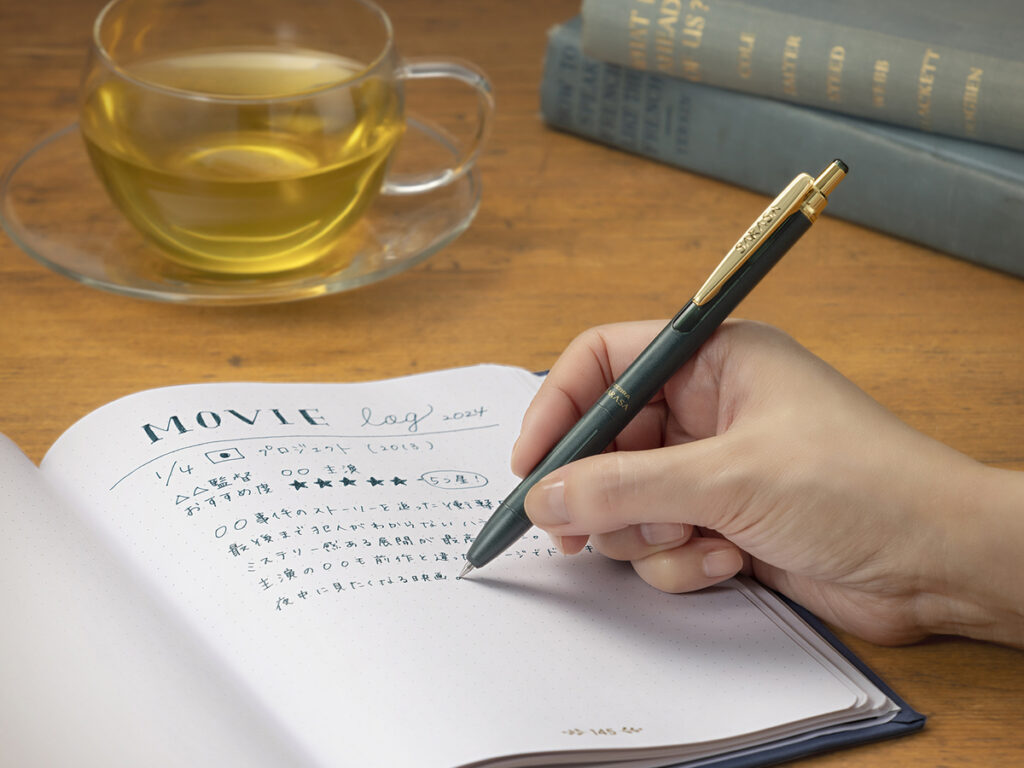 WHAT IF
AHEAD
OF US?
COLE
BAXTER
AYRED
WEBB
HACKETT
HOW TO
SPEAK
FRENCH
LIKE THE
FRENCH
SARASA
ZEBRA
SARASA
MOVIE log 2024
1/4 プロジェクト (2013)
△△監督 〇〇 主演
おすすめ度 ★★★★★ 5つ星!
〇〇事件のストーリーを追った衝撃
最後まで犯人がわからない
ミステリー感ある展開が最高
主演の〇〇も前作と違
夜中に見たくなる映画
145